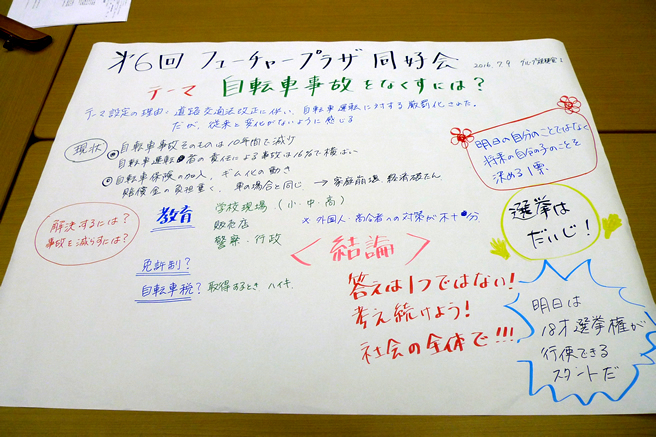 第6回 フューチャープラザ 同好会
2016.7.9
テーマ 自転車事故をなくすには?
テーマ設定の理由:道路交通法改正に伴い、自転車運転に対する厳罰化された。
だが、従来と変化がないように感じる
現状
自転車事故そのものは10年間で減少
自転車運転者の責任による事故は16%で横ばい
自転車保険の加入、ギム化の動き
賠償金の負担重く、車の場合と同じ → 家庭崩壊 経済破たん
明日の自分のことではなく
将来の自分の子のことを
決める1票
解決するには?
事故を減らすには?
教育
学校現場(小・中・高)
販売店
警察・行政
※外国人・高齢者への対策が不十分
選挙は
だいじ!
免許制?
自転車税? 取得するとき ハイキ
<結論>
答えは1つではない!
考え続けよう!
社会の全体で!!!
明日は
18才選挙権が
行使できる
スタートだ